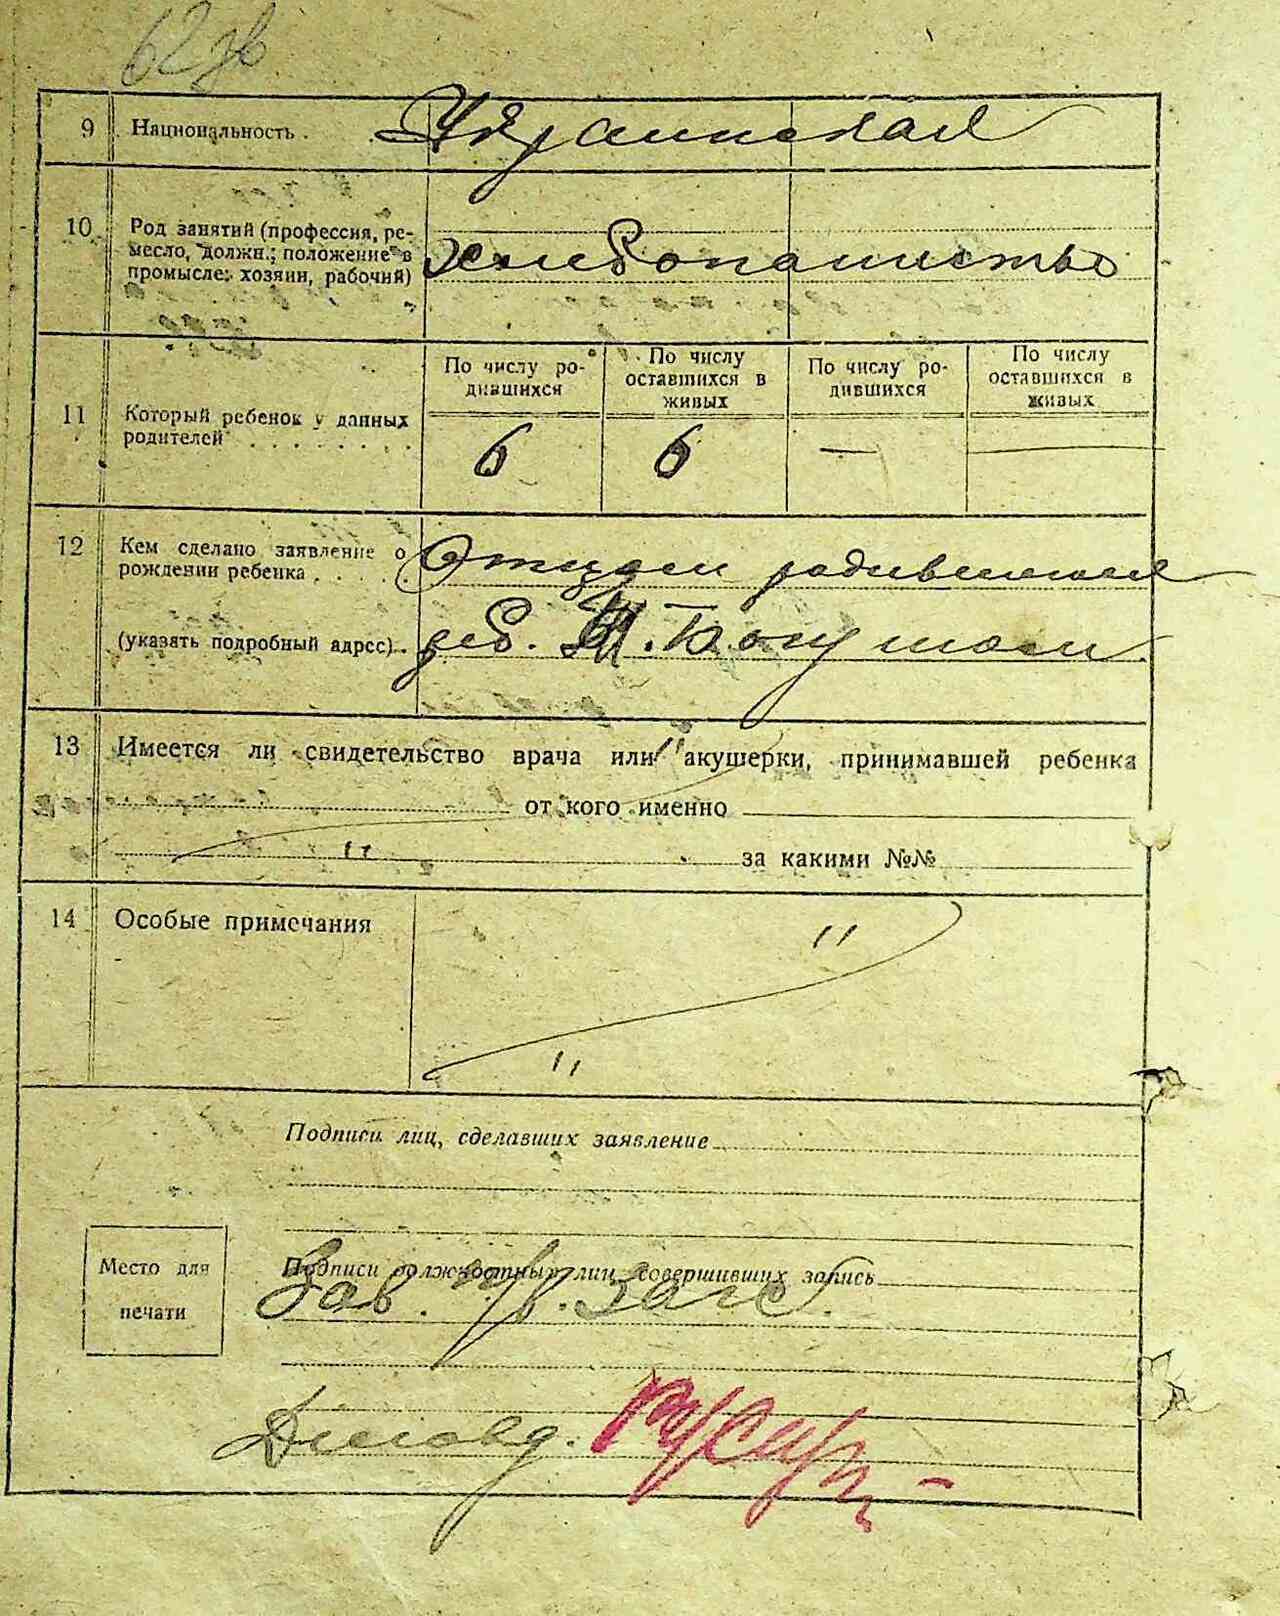 62 зв
9 Национальность . Украинская
10 Род занятий (профессия, ре-
месло, должн.; положение в
промысле: хозяин, рабочий) хлебопашество
11 Который ребенок у данных
родителей . . . . . . . .
По числу ро-
дившихся
По числу
оставшихся в
живых
По числу ро-
дившихся
По числу
оставшихся в
живых
6 6 — —
12 Кем сделано заявление о
рождении ребенка . . . . . Отцом родившегося
(указать подробный адрес) . . дер.
13 Имеется ли свидетельство врача или акушерки, принимавшей ребенка
от кого именно
" за какими №№
14 Особые примечания "
"
Подписи лиц, сделавших заявление
Подписи должностных лиц, совершивших запись
Зав. Загс.
Место для
печати
Диловд.